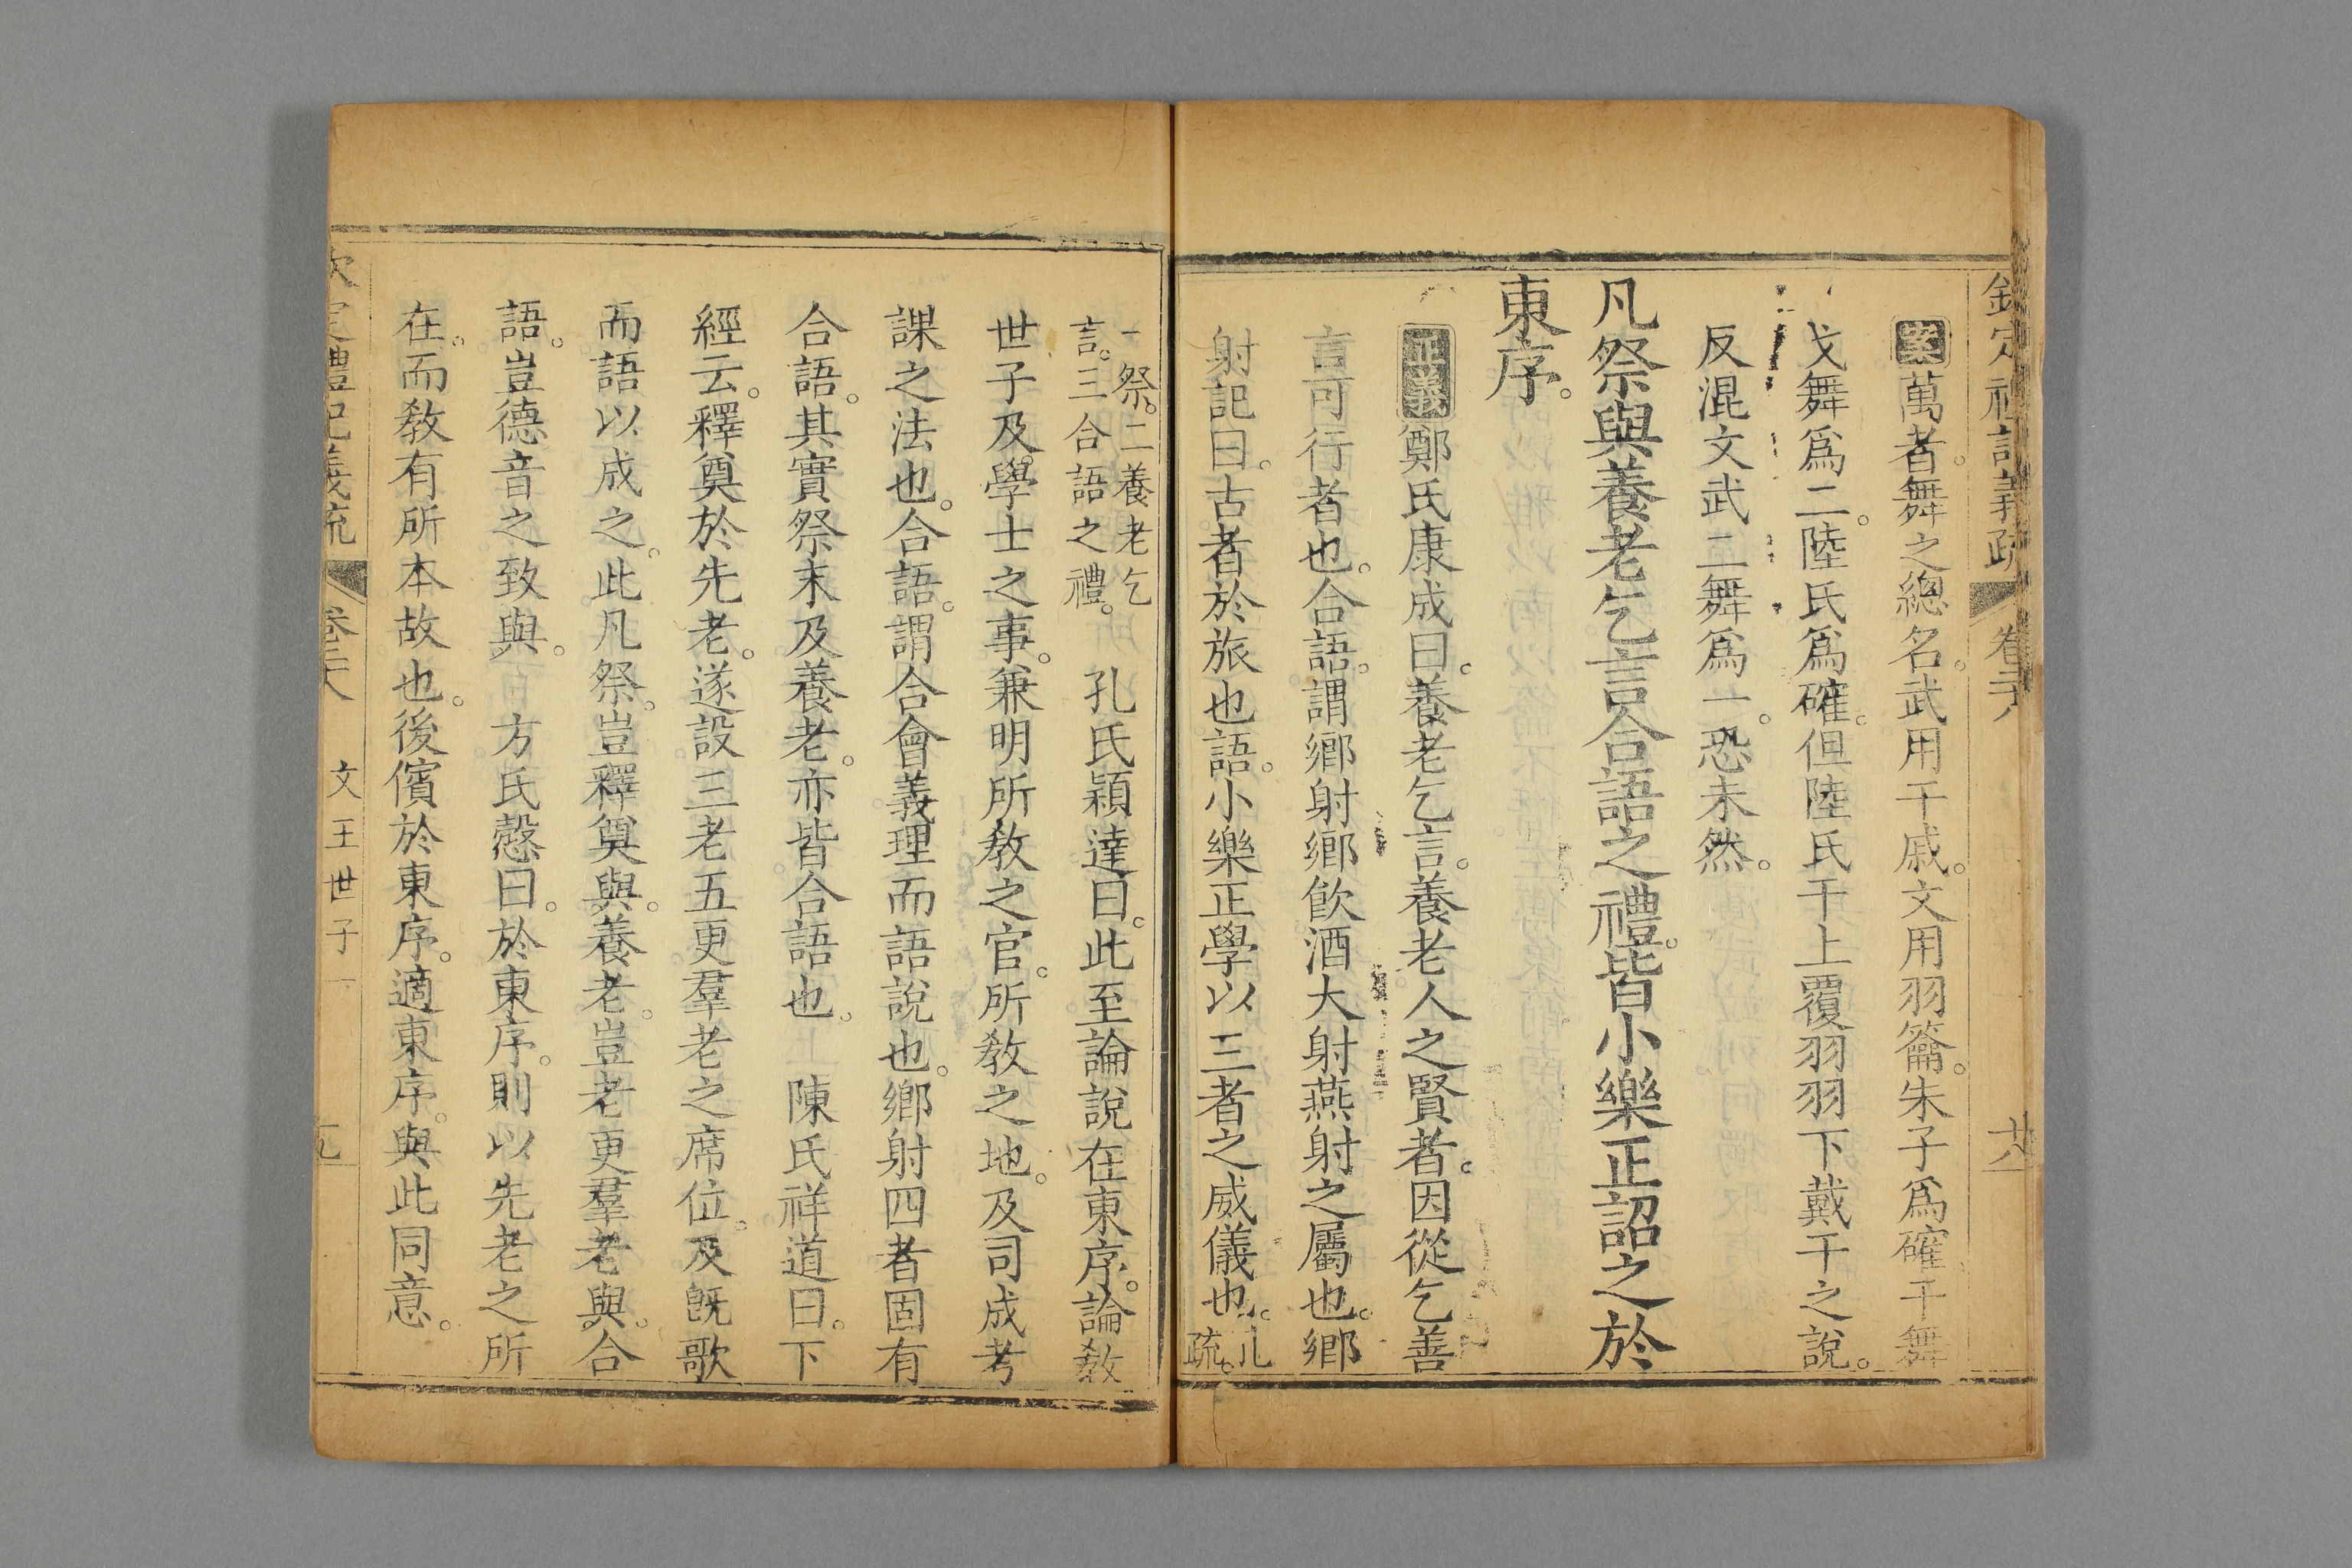 欽定禮記義疏 卷二十八 廿八
案萬者。舞之總名。武用干戚。文用羽籥。朱子爲確干舞
戈舞爲二。陸氏爲確。但陸氏干上覆羽羽下戴干之說。
反混文武二舞爲一。恐未然。
凡祭與養老乞言合語之禮。皆小樂正詔之於
東序。
正義鄭氏康成曰。養老乞言。養老人之賢者。因從乞善
言可行者也。合語。謂鄉射鄉飲酒大射燕射之屬也。鄉
射記曰。古者於旅也語。小樂正學以三者之威儀也。孔疏。
一祭。二養老乞言。三合語之禮。 孔氏穎達曰。此至論說在東序。論教
世子及學士之事。兼明所教之官。所教之地。及司成考
課之法也。合語。謂合會義理而語說也。鄉射四者固有
合語。其實祭末及養老。亦皆合語也。 陳氏祥道曰。下
經云。釋奠於先老。遂設三老五更羣老之席位。及旣歌
而語以成之。此凡祭。豈釋奠與。養老。豈老更羣老與。合
語。豈德音之致與。 方氏慤曰。於東序。則以先老之所
在。而教有所本故也。後儐於東序。適東序。與此同意。
欽定禮記義疏 卷二十八 文王世子一